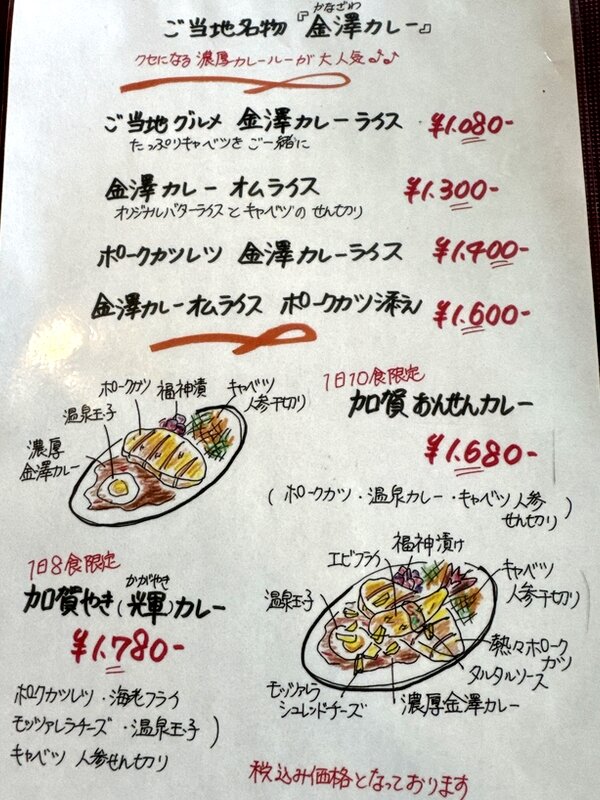 ご当地名物『金澤カレー』
かなざわ
クセになる濃厚カレールーが大人気♪♪
ご当地グルメ 金澤カレーライス ¥1.080-
たっぷりキャベツをご一緒に
金澤カレー オムライス ¥1.300-
オリジナルバターライスとキャベツのせん切り
ポークカツレツ 金澤カレーライス ¥1.400-
金澤カレーオムライス ポークカツ添え ¥1.600-
1日10食限定
加賀おんせんカレー
¥1.680-
(ポークカツ・温泉カレー・キャベツ人参
せん切り)
ポークカツ
福神漬
キャベツ
人参千切り
温泉玉子
濃厚
金澤カレー
1日8食限定
かがやき
加賀やき(輝)カレー
¥1.780-
ポークカツレツ・海老フライ
モッツァレラチーズ・温泉玉子)
キャベツ 人参せん切り
福神漬け
エビフライ
キャベツ
人参千切り
温泉玉子
熱々ポーク
カツ
タルタルソース
モッツァレラ
シュレンドチーズ
濃厚金澤カレー
税込み価格となっております